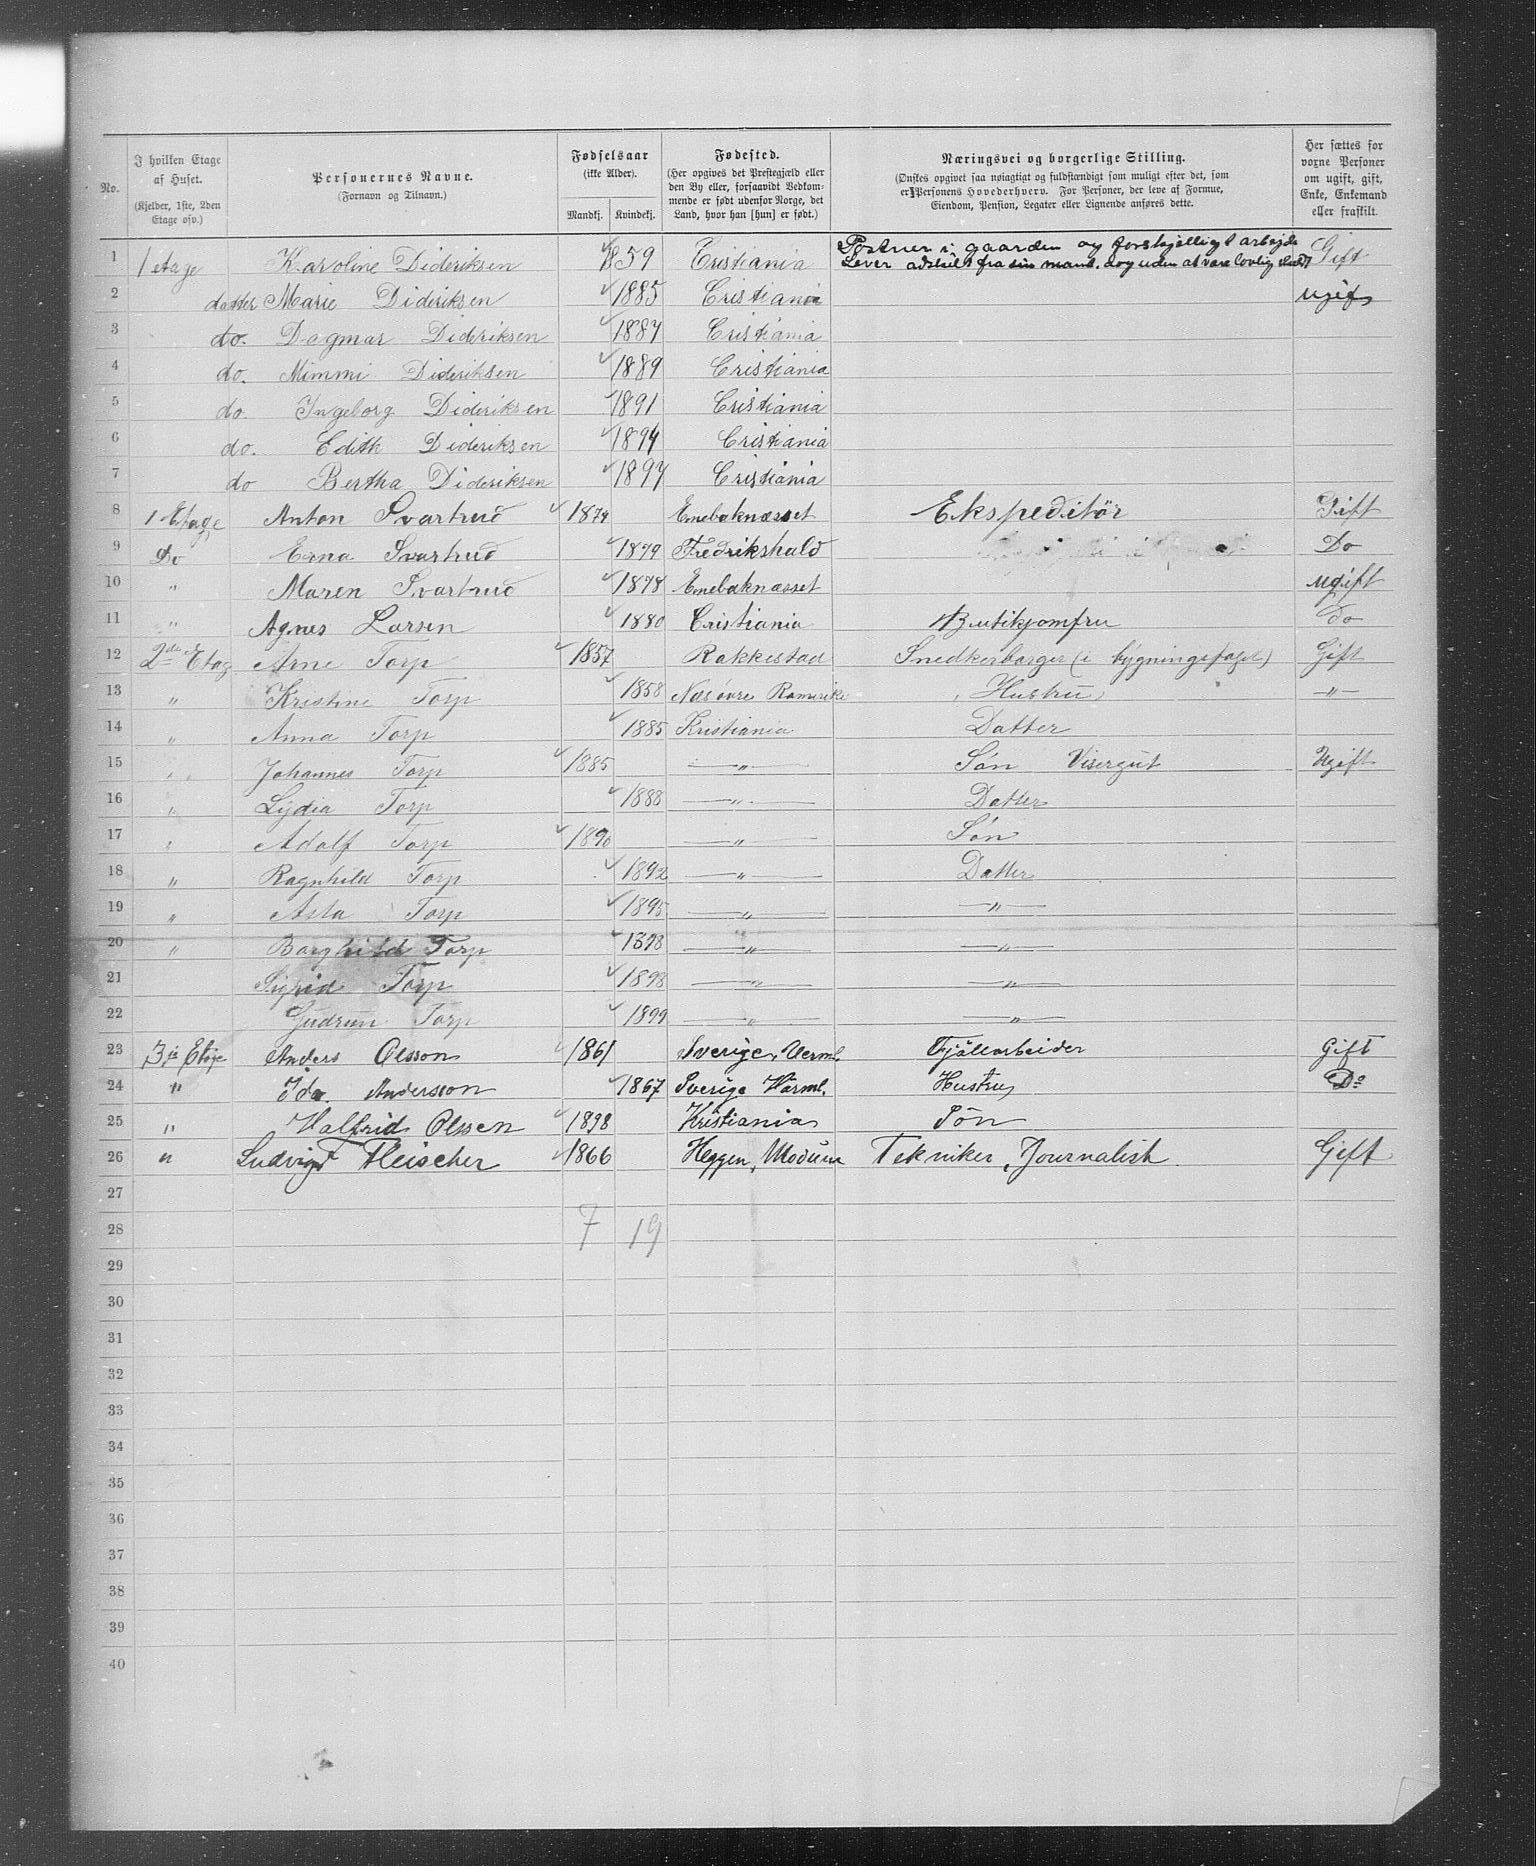 No.
I hvilken Etage af Huset.
(Kjelder, 1ste, 2den Etage osv.)
Personernes Navne.
(Fornavn og Tilnavn.)
Fødselsaar
(ikke Alder).
Mandkj. Kvindekj.
Fødested.
(Her opgives det Prestegjæld eller den By eller, forsaavidt Vedkommende er født udenfor Norge, det Land, hvor han [hun] er født.)
Næringsvei og borgerlige Stilling.
(Ønskes opgivet saa nøiagtigt og fuldstændigt som muligt efter det, som er Personens Hovederhverv. For Personer, der leve af Formue, Eiendom, Pension, Legater eller Lignende anføres dette.
Her sættes for voxne Personer om ugift, gift, Enke, Enkemand eller fraskilt.
1 1 etage Karoline Dideriksen 1859 Cristiania Postner i gaarden og forskjelligt arbejde Gift
Lever adskilt fra sin mand. dog uden at være lovlig skildt
2 datter Marie Dideriksen 1885 Cristiania ugift
3 do. Dagmar Dideriksen 1887 Cristiania
4 do. Mimmi Dideriksen 1889 Cristiania
5 do. Ingeborg Dideriksen 1891 Cristiania
6 do. Edith Dideriksen 1894 Cristiania
7 do Bertha Dideriksen 1897 Cristiania
8 1 Etage Anton Svartrud 1874 Enebaknæsset Ekspeditör Gift
9 Do Erna Svartrud 1879 Fredrikshald Do
10 " Maren Svartrud 1878 Enebaknæsset ugift
11 " Agnes Larsen 1880 Cristiania Butikjomfru do
12 2den Etag Arne Torp 1857 Rakkestad Snedkerborger (i bygningsfaget) Gift
13 " Kristine Torp 1858 Næs övre Romerike Hustru — " —
14 " Anna Torp 1885 Kristiania Datter
15 " Johannes Torp 1885 — " — Søn Visergut Ugift
16 " Lydia Torp 1888 — " — Datter
17 " Adolf Torp 1890 — " — Søn
18 " Ragnhild Torp 1892 — " — Datter
19 " Asta Torp 1895 — " — — " —
20 " Borghild Torp 1898 — " — — " —
21 Sigrid Torp 1898 — " — — " —
22 Gudrun Torp 1899 — " — — " —
23 3je Etage Anders Olsson 1861 Sverige, Verml. Fjällarbeider Gift
24 " Ida Andersson 1867 Sverige Värml. Hustru Do
25 " Halfrid Olssen 1898 Kristiania Sön
26 " Ludvig Fleischer 1866 Heggen, Modum Tekniker, Journalist Gift
27
28 7 19
29
30
31
32
33
34
35
36
37
38
39
40